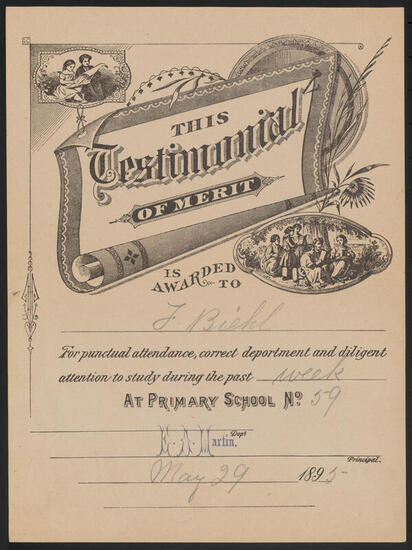 THIS
Testimonial
OF MERIT
IS
AWARDED
TO
F. Biehl
For punctual attendance, correct deportment and diligent
attention to study during the past week
AT PRIMARY SCHOOL No. 59
Dept
E. A. Martin.
Principal.
May 29 1895